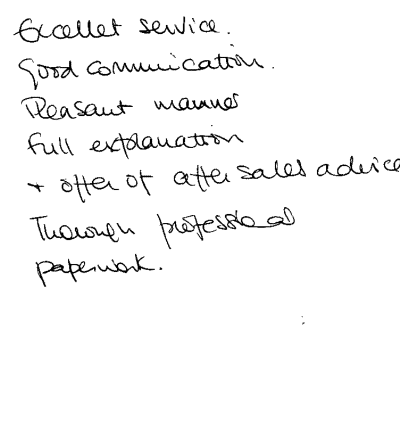 Excellet service.
Good communication.
Pleasant manner
full explanation
+ offer of after sales advice
Thorough professional
paperwork.